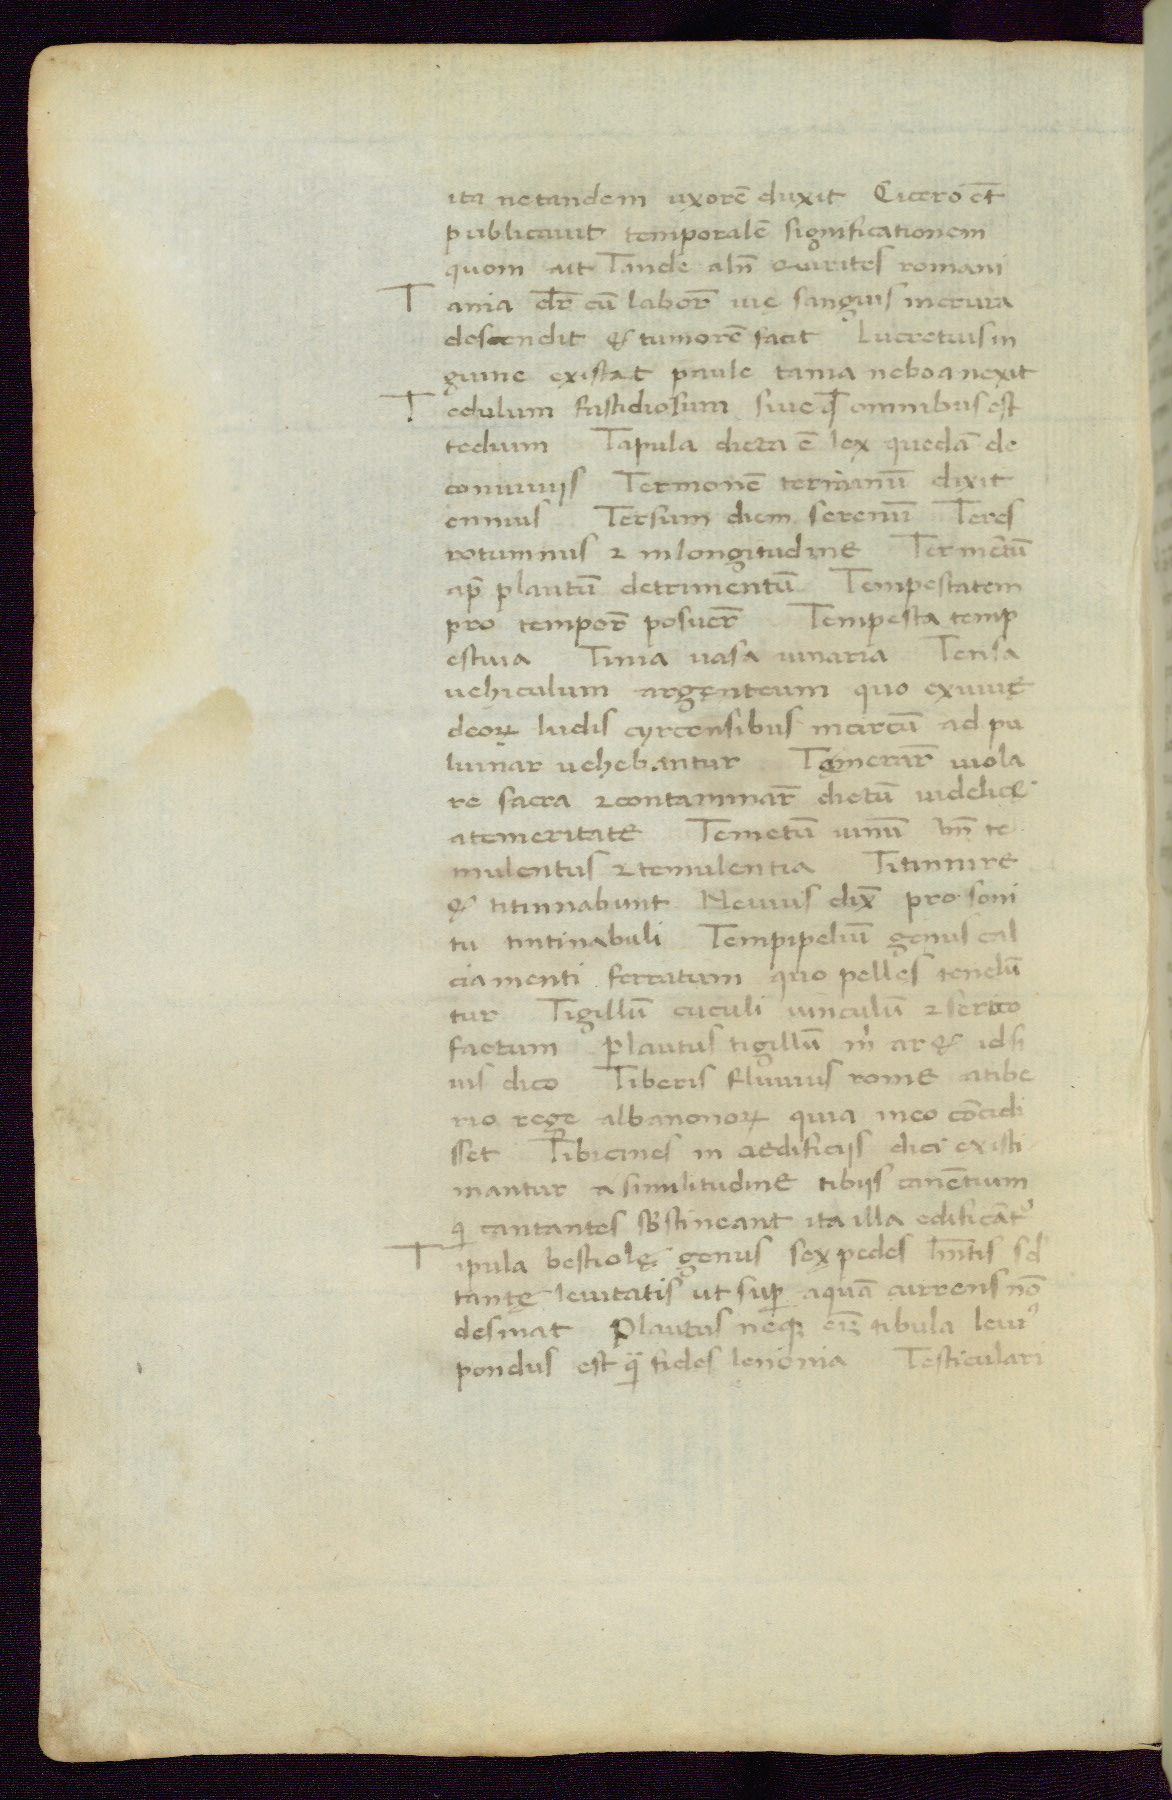 ita ne tandem uxorē duxit Cicero et̄
publicauit temporalē significationem
quom ait Tande aln̄ Quirites romani
Tania dr̄ cū labor̄ uię sanguis in crura
descendit & tumorē facit Lucretius in
guine existat paule tania ne boa nexit
Tedulum fastidiosum siue ꝙ omnibus est
tedium Tapula dicta ē lex quedā de
conuiuijs Termonē termanū dixit
ennius Tersum diem serenū Teres
rotumnus ⁊ in longitudine Termētū
ap̄ plautū detrimentū Tempestatem
pro tempor̄ posuer̄ Tempesta temp
estiua Tinia uasa uinaria Tensa
uehiculum argenteum quo exuuię
deoꝝ ludis cyrcensibus in circū ad pu
luinar uehebantur Temerar̄ uiola
re sacra ⁊ contaminar̄ dictū uidelicę
a temeritate Temetū uinū Vn̄ te
mulentus ⁊ temulentia Titinnire
& titinnabunt Neuius dix̄ pro soni
tu tintinabuli Tempipeliū genus cal
ciamenti ferratum quo pelles tenelū
tur Tigillū cuculi uinculū ⁊ serico
factum Plautus tigillū ar& id si
uis dico Tiberis fluuius rome a tibe
rio rege albanonoꝝ quia in eo cōcidi
sset Tibicines in aedificijs dici existi
mantur a similitudine tibijs canētium
q cantantes sb̄stineant ita illa edificāt᾽
Tipula bestiolę genus sex pedes hn̄tis sed
tantę leuitatis ut suꝑ aquā currens nō
desinat Plautus neqꝫ tibula leui᾽
pondus est q̄ fides lenonia Testiculari